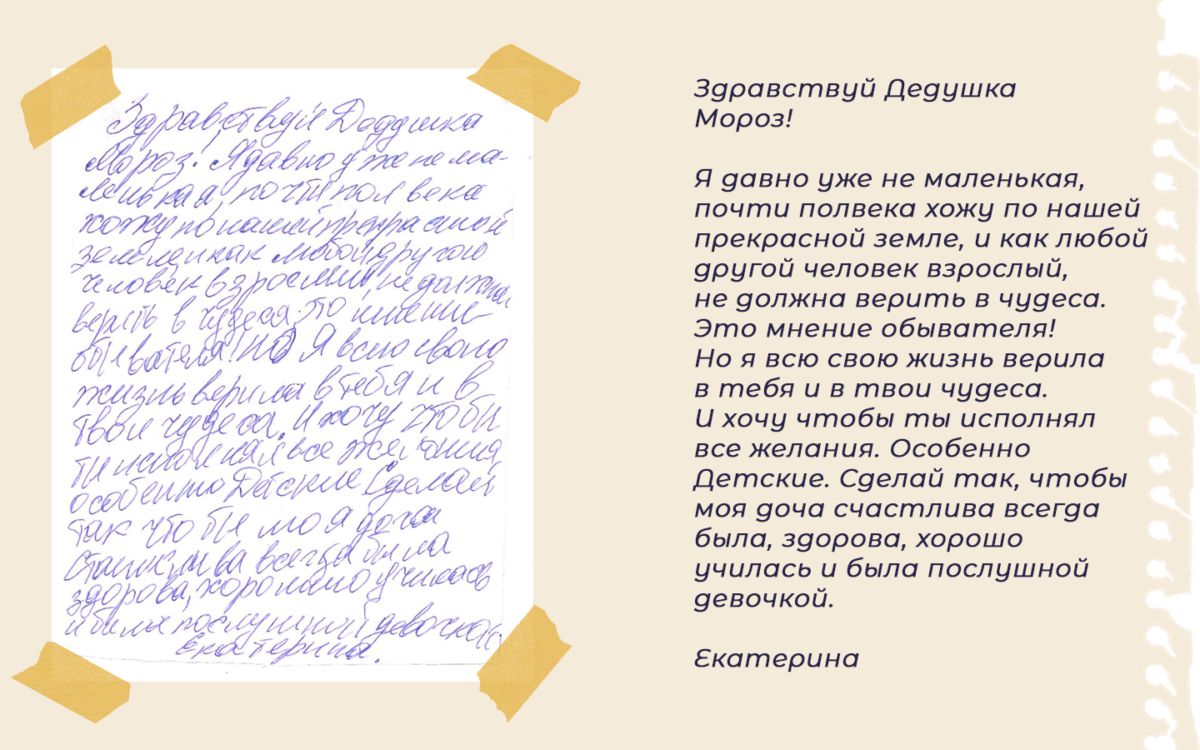 Здравствуй Дедушка
Мороз! Я давно уже не ма-
ленькая, почти пол века
хожу по нашей прекрасной
земле и как любой другой
человек взрослый, не должна
верить в чудеса. Это мнение
обывателя! Но Я всю свою
жизнь верила в тебя и в
твои чудеса. И хочу чтобы
ты исполнял все желания
особенно Детские Сделай
так что бы моя доча
счастлива всегда была
здорова, хорошо училась
и была послушной девочкой
Екатерина.
Здравствуй Дедушка
Мороз!
Я давно уже не маленькая,
почти полвека хожу по нашей
прекрасной земле, и как любой
другой человек взрослый,
не должна верить в чудеса.
Это мнение обывателя!
Но я всю свою жизнь верила
в тебя и в твои чудеса.
И хочу чтобы ты исполнял
все желания. Особенно
Детские. Сделай так, чтобы
моя доча счастлива всегда
была, здорова, хорошо
училась и была послушной
девочкой.
Екатерина